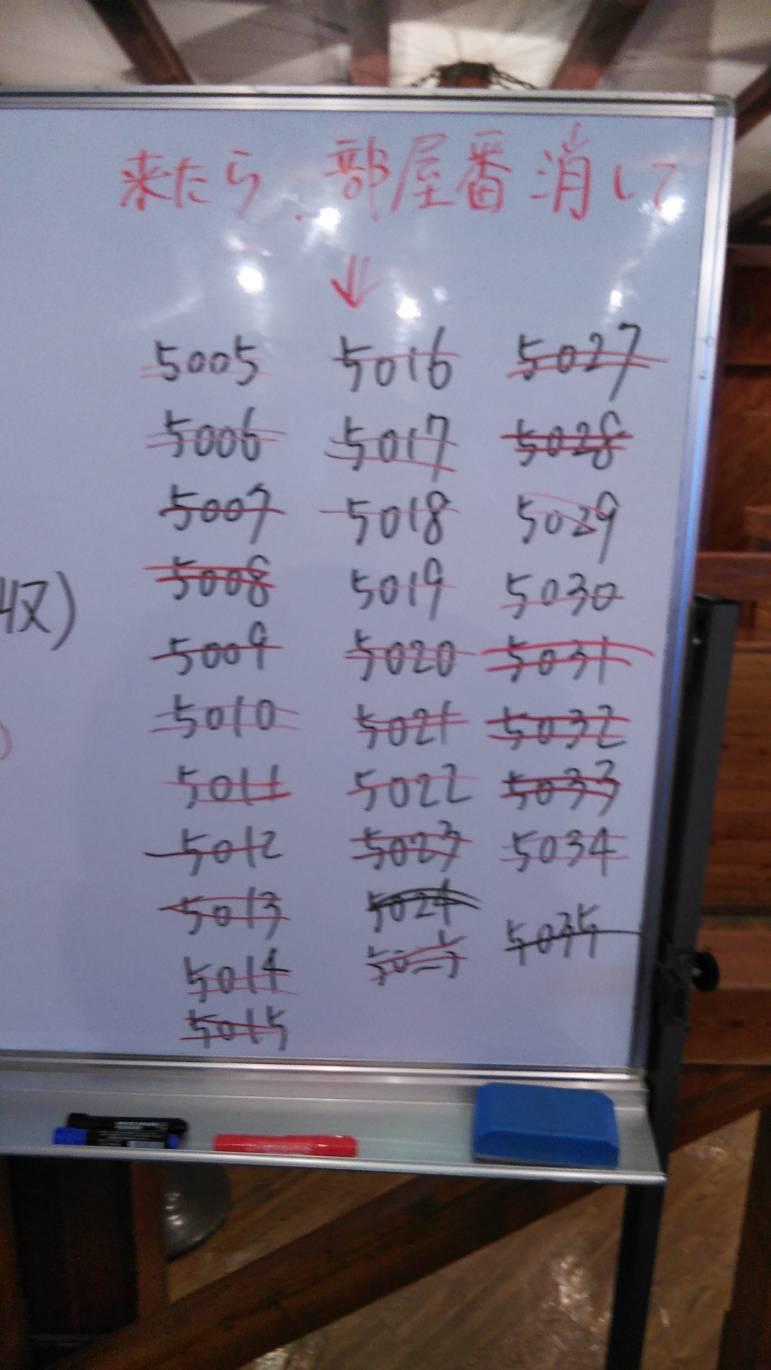 来たら、部屋番消して
↓
5005 5016 5027
5006 5017 5028
5007 5018 5029
5008 5019 5030
5009 5020 5031
5010 5021 5032
5011 5022 5033
5012 5023 5034
5013 5024 5035
5014 5025
5015
収)
)